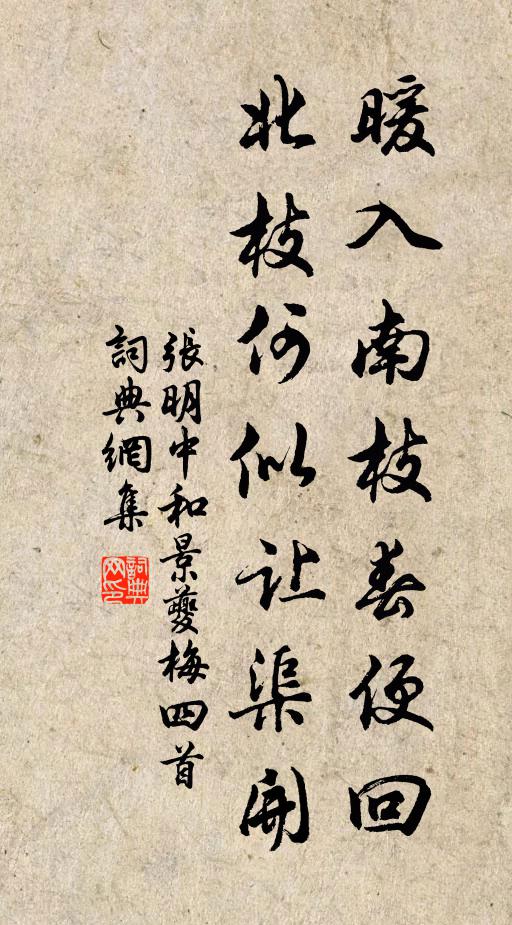 暖入南枝春便回
北枝何似让渠開
張明中和景夔梅四首
詞典網集
詞典网印